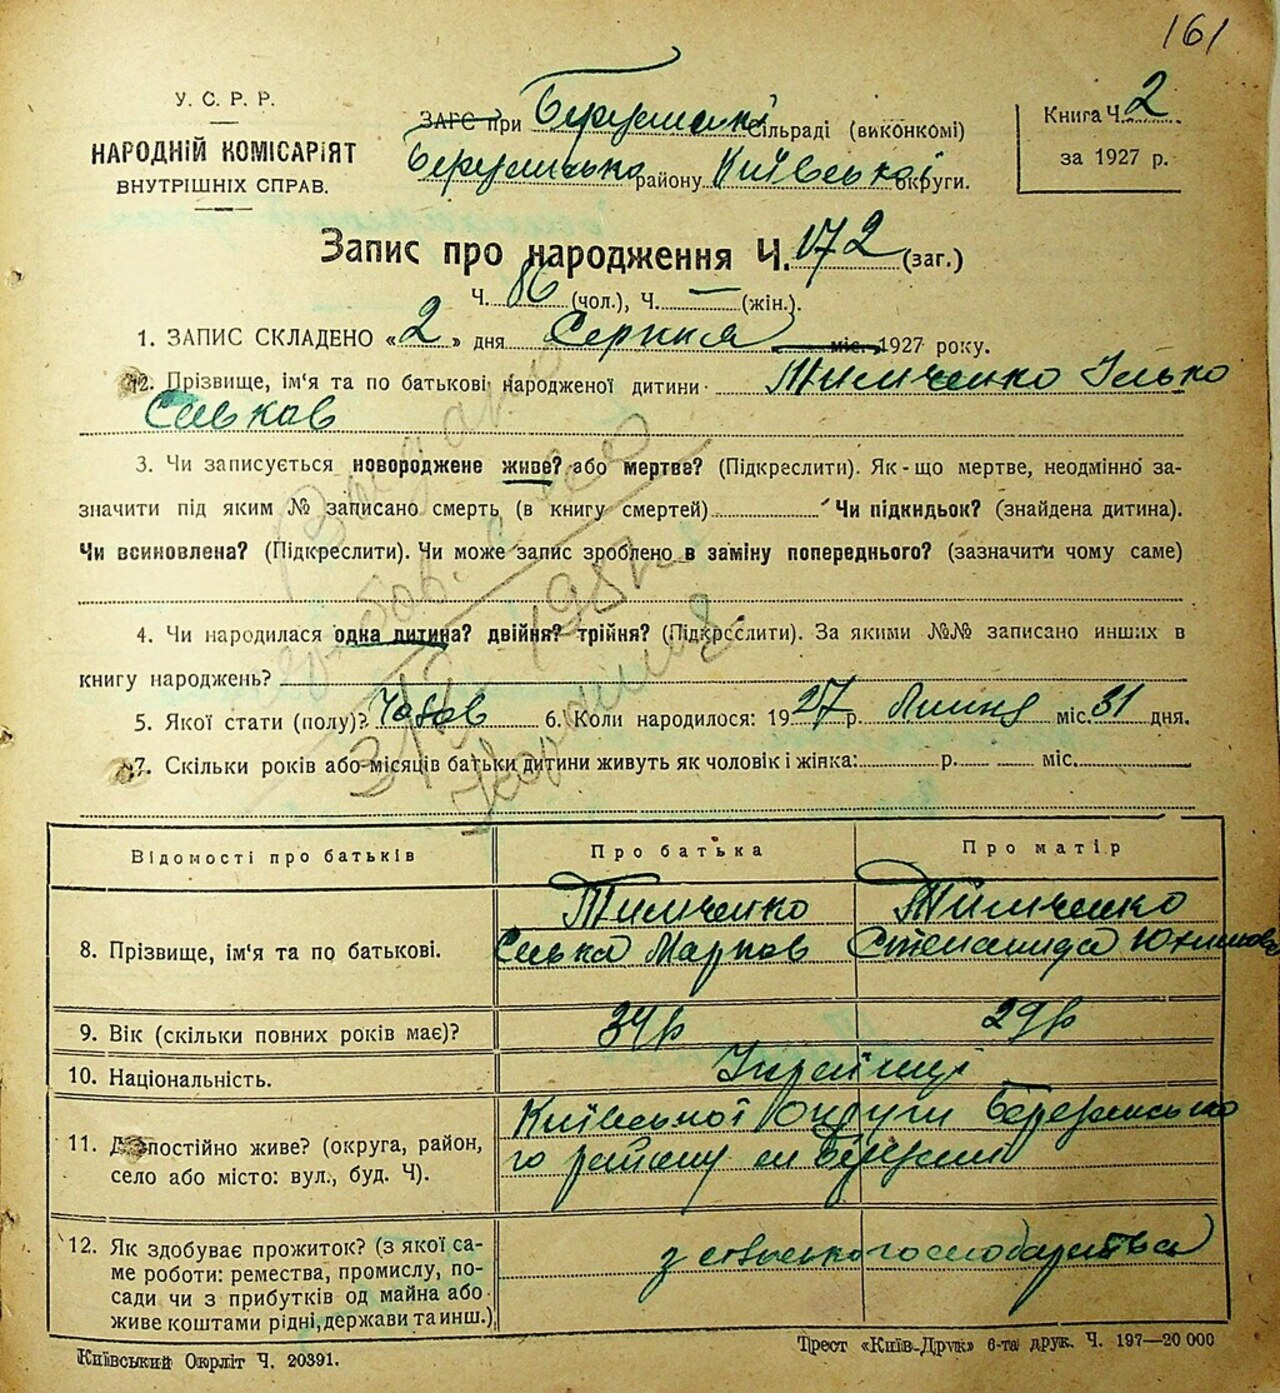 161
У. С. Р. Р.
НАРОДНІЙ КОМІСАРІЯТ
ВНУТРІШНІХ СПРАВ.
ЗАГС при Сільраді (виконкомі)
району Київської округи.
Книга Ч. 2
за 1927 р.
Запис про народження Ч. 172 (заг.)
Ч. 86 (чол.), Ч. — (жін.).
1. ЗАПИС СКЛАДЕНО «2» дня Серпня міс. 1927 року.
2. Прізвище, ім'я та по батькові народженої дитини Тимченко Ілько
Савков
3. Чи записується новороджене живе? або мертве? (Підкреслити). Як-що мертве, неодмінно за-
значити під яким № записано смерть (в книгу смертей) Чи підкидьок? (знайдена дитина).
Чи всиновлена? (Підкреслити). Чи може запис зроблено в заміну попереднього? (зазначити чому саме)
4. Чи народилася одна дитина? двійня? трійня? (Підкреслити). За якими №№ записано инших в
книгу народжень?
5. Якої стати (полу)? Чолов 6. Коли народилося: 1927 р. Липня міс. 31 дня.
7. Скільки років або місяців батьки дитини живуть як чоловік і жінка: р. міс.
Відомості про батьків Про батька Про матір
8. Прізвище, ім'я та по батькові.
Тимченко Тимченко
Савка Марков Степанида
9. Вік (скільки повних років має)? 34 р 29 р
10. Національність. Українці
11. Де постійно живе? (округа, район,
село або місто: вул., буд. Ч).
Київської Округи
го району
12. Як здобуває прожиток? (з якої са-
ме роботи: ремества, промислу, по-
сади чи з прибутків од майна або
живе коштами рідні, держави та инш.)
з сільського господарства
Київський Окрліт Ч. 20391.
Трест «Київ-Друк» 6-та друк. Ч. 197—20 000